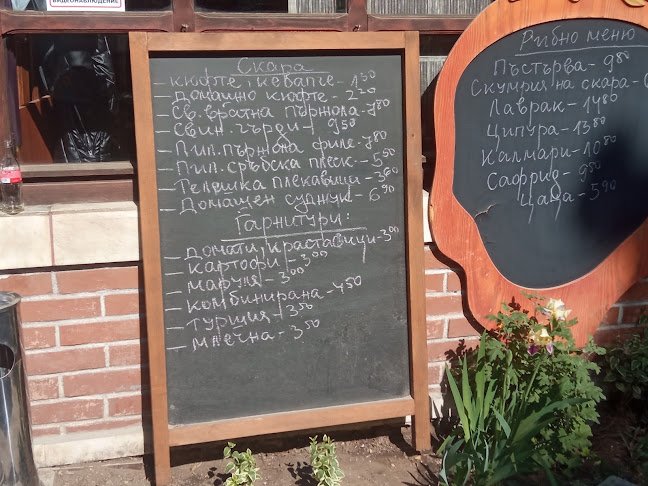 ВИДЕОНАБЛЮДЕНИЕ
Скара
- кюфте, кебапче - 1 50
- Домашно кюфте - 2 20
- Св. вратна пържола - 7 80
- Свин. гърди - 9 50
- Пил. пържола филе - 7 80
- Пил. сръбска плеск. - 5 50
- Телешка плекавици - 3 60
- Домашен суджук - 6 90
Гарнитури:
- домати, краставици - 3 00
- картофи - 3 00
- маруля - 3 00
- комбинирана - 4 50
- туршия - 3 50
- млечна - 3 50
Рибно меню
Пъстърва - 9 80
Скумрия на скара -
Лаврак - 14 80
Ципура - 13 80
Калмари - 10 80
Сафрид - 9 50
Цаца - 5 90